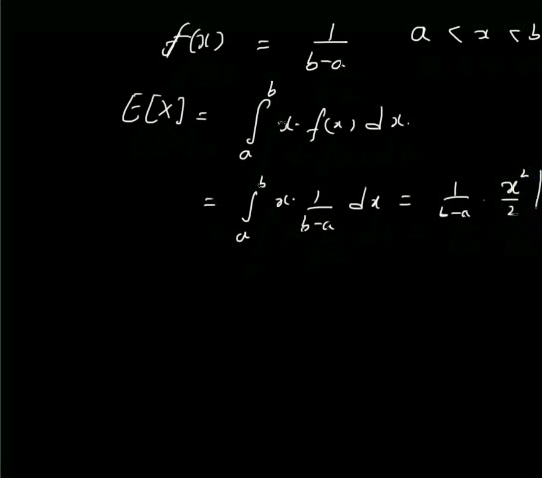 f(x) = 1/(b-a) a < x < b
E[X] = ∫_a^b x. f(x) dx.
= ∫_a^b x. 1/(b-a) dx = 1/(b-a) . x²/2 |